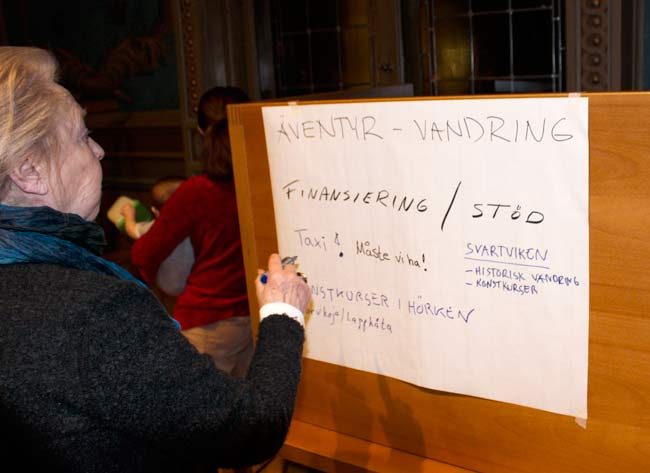 ÄVENTYR - VANDRING
FINANSIERING / STÖD
Taxi! Måste vi ha!
SVARTVIKEN
- HISTORISK VANDRING
- KONSTKURSER
KONSTKURSER I HÖRKEN
/Lappkåta